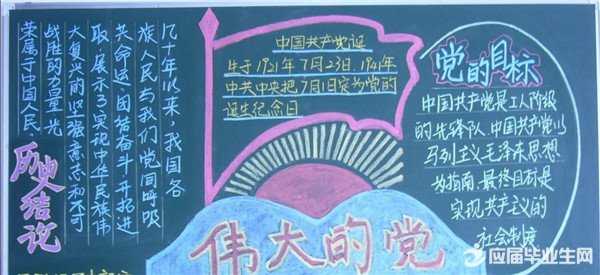 历史结论
几十年以来,我国各
族人民与我们党同呼吸
共命运·团结奋斗·开拓进
取·展示了实现中华民族伟
大复兴的坚强意志和不可
战胜的力量·光
荣属于中国人民
中国共产党诞
生于1921年7月23日.1941年
中共中央把7月1日定为党的
诞生纪念日
党的目标
中国共产党是工人阶级
的先锋队.中国共产党以
马列主义毛泽东思想
为指南.最终目标是
实现共产主义的
社会制度
伟大的党
应届毕业生网